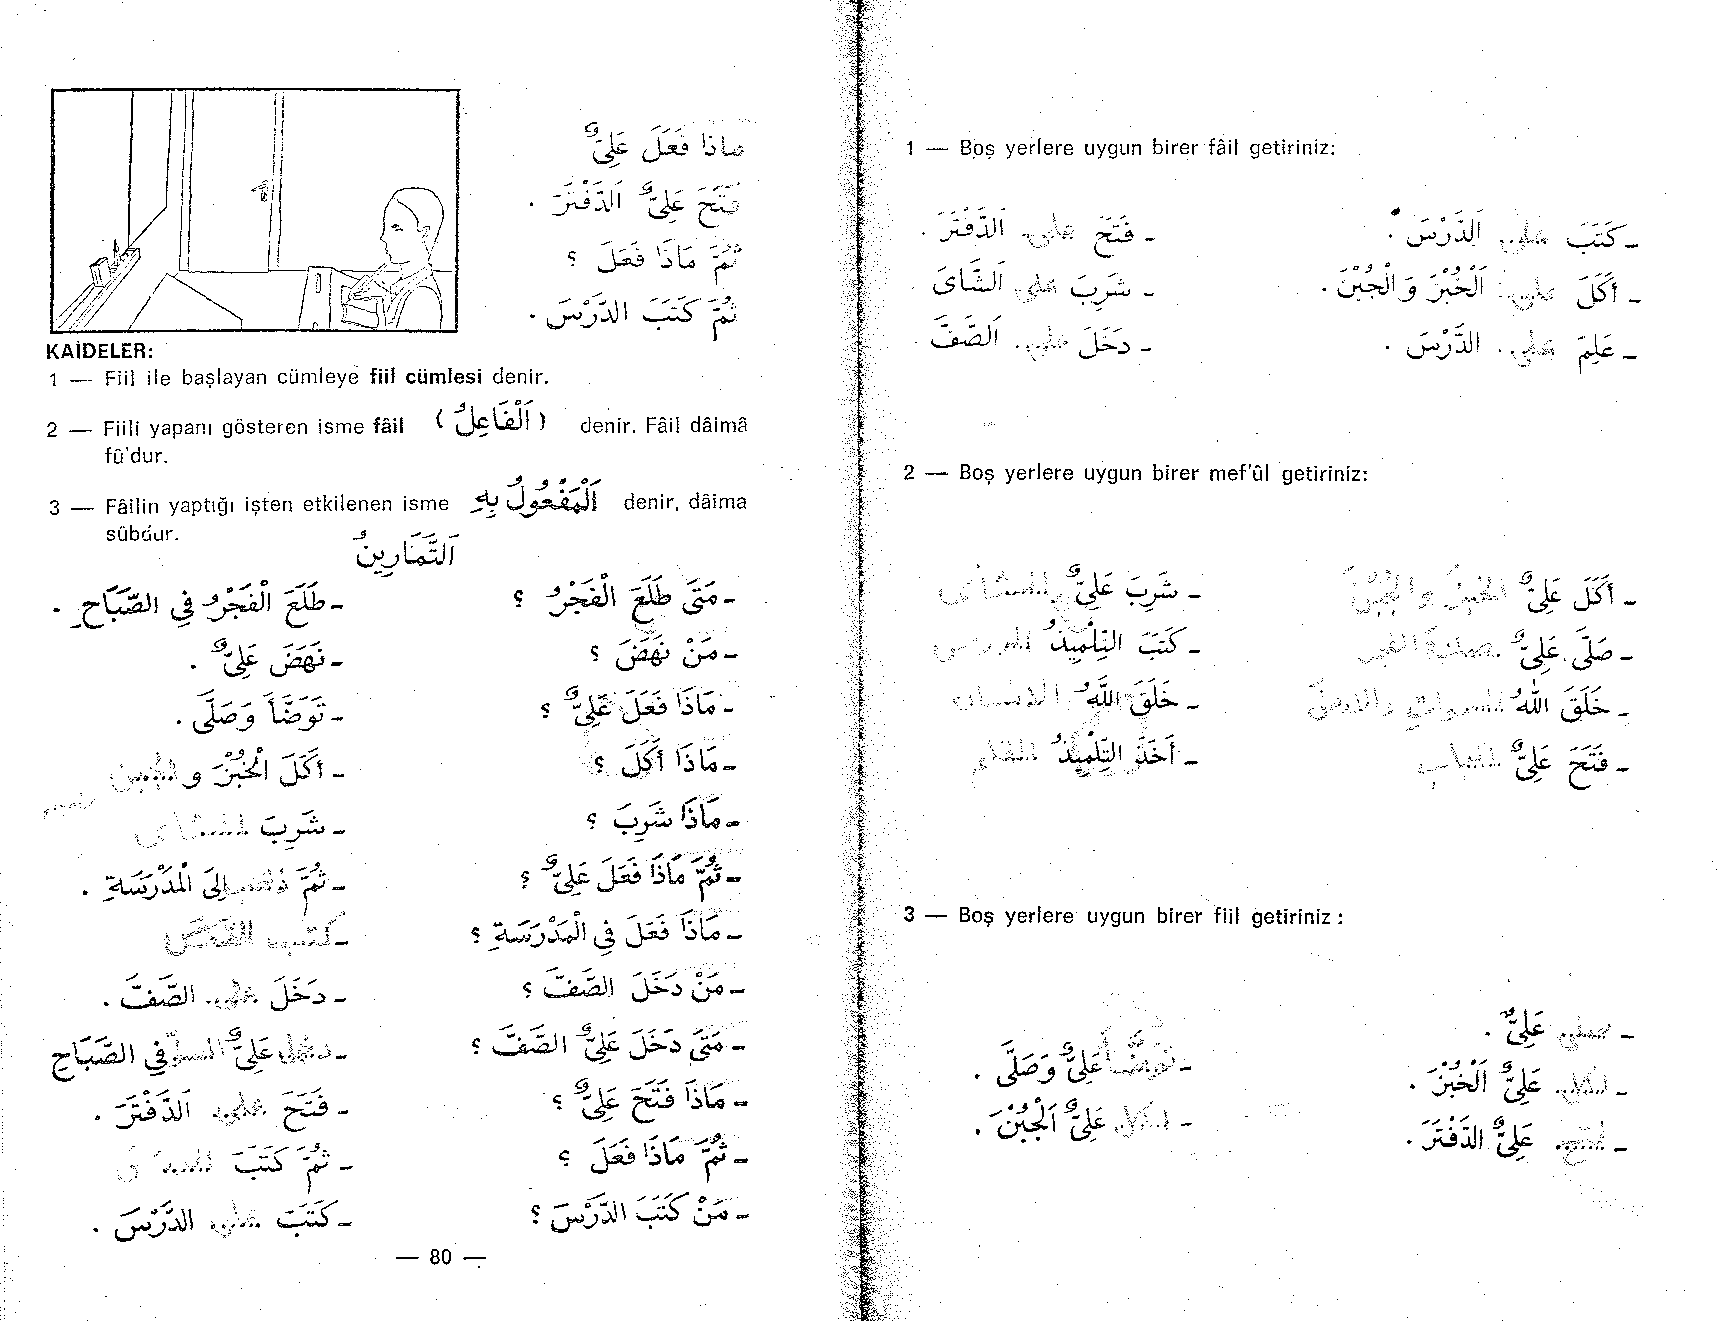 ماذا فَعَلَ عَلِيٌّ
فَتَحَ عَلِيٌّ اَلدَّفْتَرَ .
ثُمَّ مَاذَا فَعَلَ ؟
ثُمَّ كَتَبَ الدَّرْسَ .
KAİDELER:
1 — Fiil ile başlayan cümleye fiil cümlesi denir.
2 — Fiili yapanı gösteren isme fâil ( اَلْفَاعِلُ ) denir. Fâil dâimâ
fû'dur.
3 — Fâilin yaptığı işten etkilenen isme اَلْمَفْعُولُ بِهِ denir, dâima
sübdur.
اَلتَّمَارِينُ
- مَتَى طَلَعَ الْفَجْرُ ؟ - طَلَعَ الْفَجْرُ فِي الصَّبَاحِ .
- مَنْ نَهَضَ ؟ - نَهَضَ عَلِيٌّ .
- مَاذَا فَعَلَ عَلِيٌّ ؟ - تَوَضَّأَ وَصَلَّى .
- مَاذَا أَكَلَ ؟ - أَكَلَ الْخُبْزَ و
- مَاذَا شَرِبَ ؟ - شَرِبَ
- ثُمَّ مَاذَا فَعَلَ عَلِيٌّ ؟ - ثُمَّ ذهب إِلَى الْمَدْرَسَةِ .
- مَاذَا فَعَلَ فِي الْمَدْرَسَةِ ؟ - كتب
- مَنْ دَخَلَ الصَّفَّ ؟ - دَخَلَ على الصَّفَّ .
- مَتَى دَخَلَ عَلِيٌّ الصَّفَّ ؟ - دخل عَلِيٌّ فِي الصَّبَاحِ
- مَاذَا فَتَحَ عَلِيٌّ ؟ - فَتَحَ على اَلدَّفْتَرَ .
- ثُمَّ مَاذَا فَعَلَ ؟ - ثُمَّ كَتَبَ
- مَنْ كَتَبَ الدَّرْسَ ؟ - كَتَبَ على الدَّرْسَ .
— 80 —
1 — Boş yerlere uygun birer fâil getiriniz:
- كَتَبَ على اَلدَّرْسَ . - فَتَحَ على اَلدَّفْتَرَ .
- أَكَلَ على اَلْخُبْزَ وَ الْجُبْنَ . - شَرِبَ على اَلشَّاىَ .
- عَلِمَ على اَلدَّرْسَ . - دَخَلَ على اَلصَّفَّ .
2 — Boş yerlere uygun birer mef'ûl getiriniz:
- أَكَلَ عَلِيٌّ الخبز والجبن - شَرِبَ عَلِيٌّ الشاى
- صَلَّى عَلِيٌّ صلاة الفجر - كَتَبَ التِّلْمِيذُ الدرس
- خَلَقَ اللهُ - خَلَقَ اللهُ الانسان
- فَتَحَ عَلِيٌّ الباب - أَخَذَ التِّلْمِيذُ القلم
3 — Boş yerlere uygun birer fiil getiriniz :
- عَلِيٌّ . - توضأ عَلِيٌّ وَصَلَّى .
- اكل عَلِيٌّ اَلْخُبْزَ . - اكل عَلِيٌّ اَلْجُبْنَ .
- عَلِيٌّ الدَّفْتَرَ .